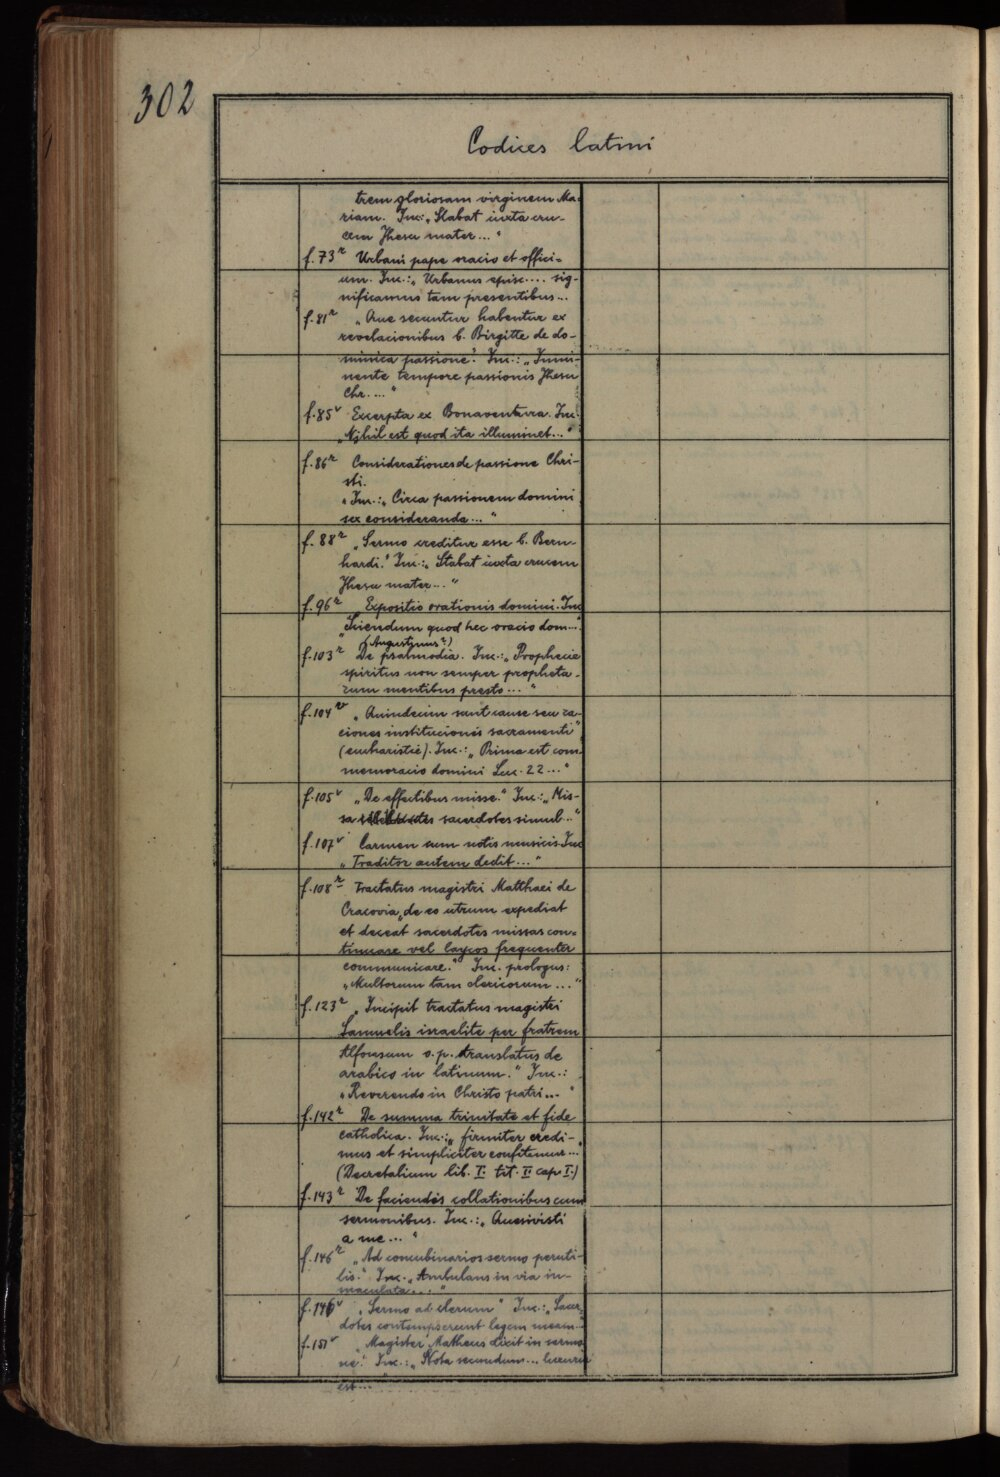 302
Codices latini
trem gloriosam virginem Ma-
riam. Inc.: „Stabat iuxta cru-
cem Jhesu mater..."
f. 73r Urbani pape oracio et offici-
um. Inc.: „Urbanus episc.... sig-
nificamus tam presentibus...
f. 81r „Que secuntur habentur ex
revelacionibus b. Birgitte de do-
minica passione". Inc.: „Immi-
nente tempore passionis Jhesu
Chr...."
f. 85v Excerpta ex Bonaventura. Inc.
„Nihil est quod ita illuminet..."
f. 86r Considerationes de passione Chri-
sti.
„Inc.: „Circa passionem domini
sex consideranda..."
f. 88r „Sermo creditur esse b. Bern-
hardi." Inc.: „Stabat iuxta crucem
Jhesu mater..."
f. 96r Expositio orationis domini. Inc
„Sciendum quod hec oracio dom..."
(Augustinus?)
f. 103r De psalmodia. Inc.: „Prophecie
spiritus non semper propheta-
rum mentibus presto..."
f. 104v „Quindecim sunt cause seu ra-
ciones institucionis sacramenti"
(eucharistie). Inc.: „Prima est com
memoracio domini Luc. 22..."
f. 105v „De effectibus misse." Inc.: „Mis-
sa sacerdotes simul.."
f. 107v Carmen cum notis musicis. Inc
„Traditor autem dedit..."
f. 108r Tractatus magistri Matthaei de
Cracovia „de eo utrum expediat
et deceat sacerdotes missas con-
tinuare vel laycos frequenter
communicare." Inc. prologus:
„Multorum tam clericorum..."
f. 123r „Incipit tractatus magistri
Samuelis israelite per fratrem
Alfonsum o. p. translatus de
arabico in latinum." Inc.:
„Reverendo in Christo patri..."
f. 142r De summa trinitate et fide
catholica. Inc.: „firmiter credi-
mus et simpliciter confitemur..."
(Decretalium lib. I. tit. I. cap. I.)
f. 143r De faciendis collationibus cum
sermonibus. Inc.: „Quesivisti
a me..."
f. 146r „Ad concubinarios sermo peruti-
lis." Inc. „Ambulans in via in-
maculata..."
f. 146v „Sermo ad clerum" Inc.: „Sacer-
dotes contempserunt legem meam.."
f. 151v „Magister Matheus dicit in sermo
ne." Inc.: „Nota secundum... luxuria
est..."